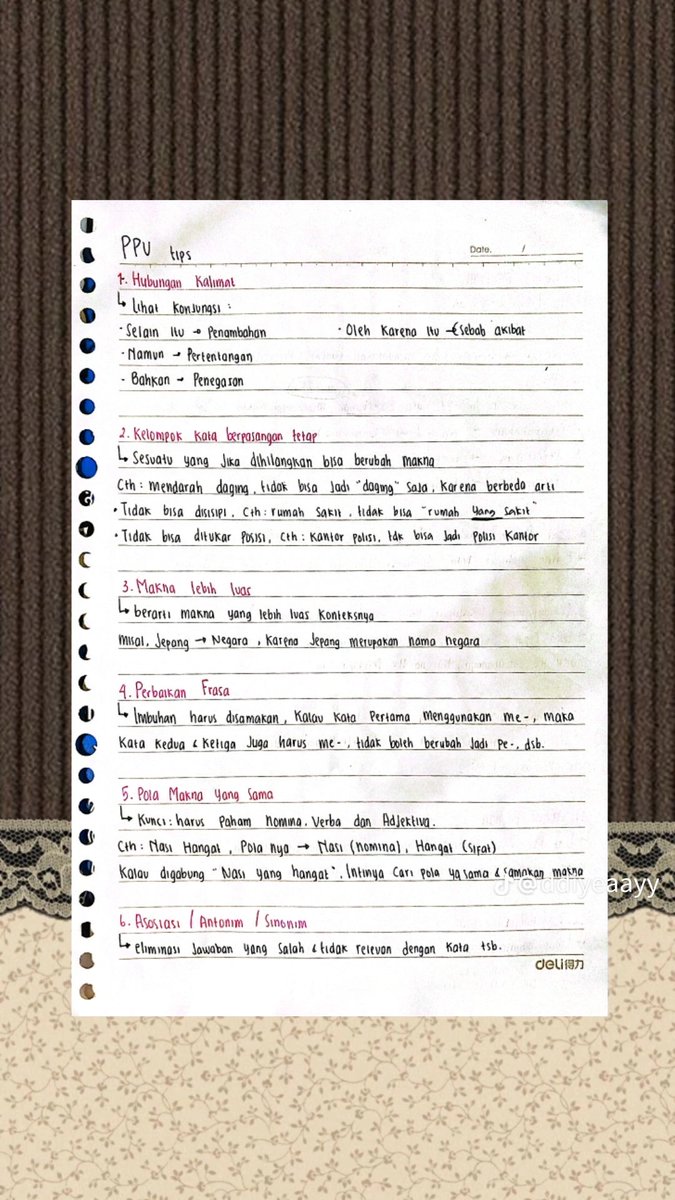 PPU tips
Date. /
1. Hubungan Kalimat
↳ Lihat Konjungsi :
· Selain itu → Penambahan · Oleh Karena itu → sebab akibat
· Namun → Pertentangan
· Bahkan → Penegasan
2. Kelompok Kata berpasangan tetap
↳ Sesuatu yang Jika dihilangkan bisa berubah makna
Cth : mendarah daging, tidak bisa Jadi "daging" saja, Karena berbeda arti
· Tidak bisa disisipi, Cth : rumah sakit, tidak bisa "rumah yang sakit"
· Tidak bisa ditukar Posisi, Cth : Kantor polisi, tdk bisa Jadi Polisi Kantor
3. Makna lebih luas
↳ berarti makna yang lebih luas Konteksnya
Misal, Jepang → Negara, Karena Jepang merupakan nama negara
4. Perbaikan Frasa
↳ Imbuhan harus disamakan, Kalau Kata Pertama menggunakan me-, maka
Kata Kedua & Ketiga Juga harus me-, tidak boleh berubah Jadi Pe-, dsb.
5. Pola Makna yang sama
↳ Kunci : harus Paham nomina, Verba dan Adjektiva.
Cth : Nasi Hangat, Pola nya → Nasi (nomina), Hangat (sifat)
Kalau digabung "Nasi yang hangat". Intinya Cari pola yg sama & samakan makna
@ddiyeaayy
6. Asosiasi / Antonim / Sinonim
↳ eliminasi Jawaban yang Salah & tidak relevan dengan Kata tsb.
deli得力